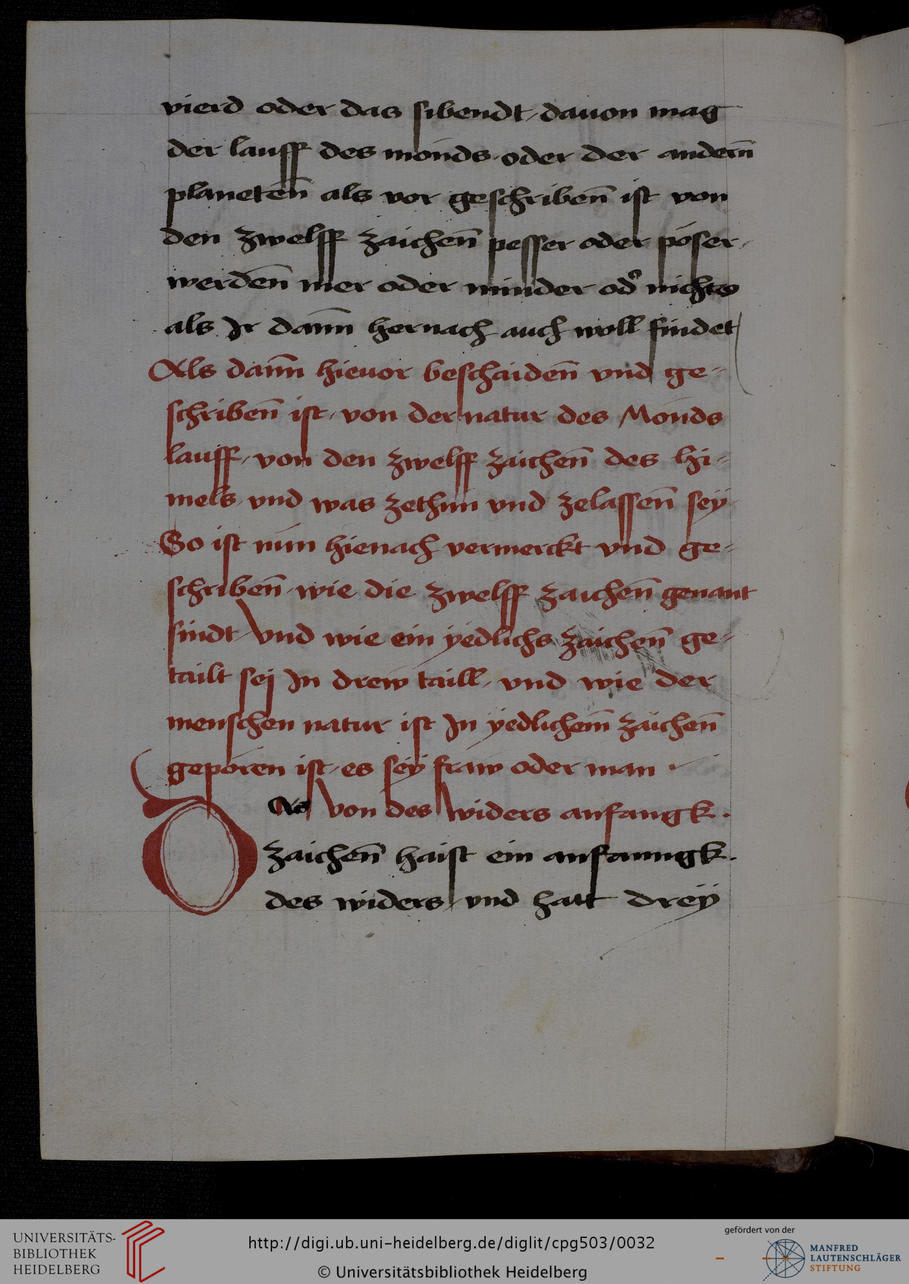 vierd oder das sibendt / dauon mag
der lauff des monds / oder der andern̄
planeten̄ als vor geschriben̄ ist von
den zwelff zaichen̄ pesser oder póser /
werden̄ mer oder minder od͛ nichts
als Ir dan̄n hernach auch woll findet
Als dan̄n hieuor beschaiden̄ vnd ge-
schriben̄ ist / von der natur des Monds
lauff / von den zwelff zaichen̄ des hi-
mels / vnd was zethun vnd zelassen̄ sey
So ist nun hienach vermerckt vnd ge-
schriben̄ / wie die zwelff zaichen̄ genant
sindt / vnd wie ein yedlichs zaichen̄ ge-
tailt sej In drew taill / vnd wie der
menschen natur ist In yedlichem̄ zaichen̄
geporen ist / es sey fraw oder man /
DAs von des widers anfangk .
zaichen̄ haist ein anfanngk .
des widers / vnd hatt dreÿ
UNIVERSITÄTS-
BIBLIOTHEK
HEIDELBERG
http://digi.ub.uni-heidelberg.de/diglit/cpg503/0032
© Universitätsbibliothek Heidelberg
gefördert von der
MANFRED
LAUTENSCHLÄGER
STIFTUNG